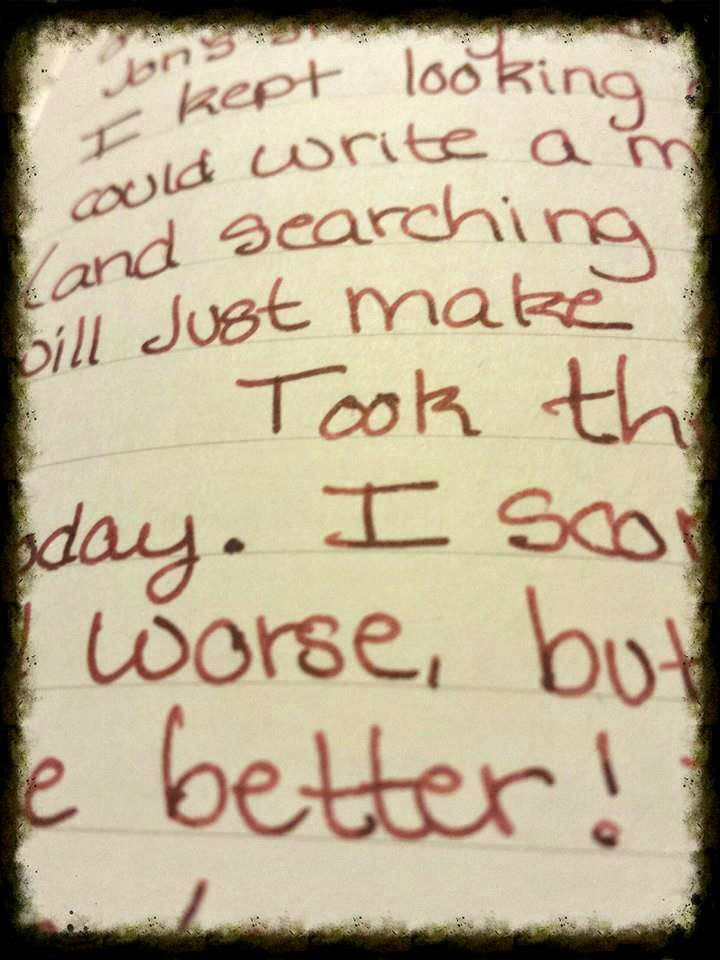 Jon's
I kept looking
could write a m
(and searching
will Just make
Took th
oday. I scor
worse, but
e better!